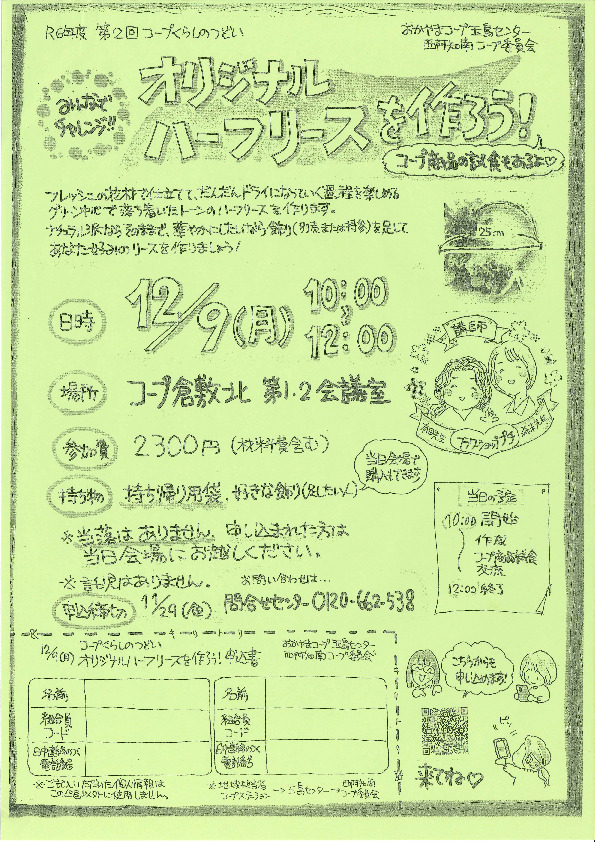 R6年度 第2回 コープくらしのつどい
おかやまコープ 玉島センター
コープ委員会
みんなで
チャレンジ!!
オリジナル
ハーフリースを作ろう!
コープ商品の試食もあるよ♡
フレッシュの花材で仕立てて、だんだんドライになっていく過程を楽しめる
グリーン中心で落ち着いたトーンのハーフリースを作ります。
ナチュラル派ならそのままで、華やかにしたいなら飾り(別売または持参)を足して
あなた好みのリースを作りましょう!
25cm
日時
12/9(月) 10:00
12:00
講師
場所
コープ倉敷北 第1.2会議室
フラワーショップ
参加費
2.300円(材料費含む)
当日会場で
購入もできます
持ち物
持ち帰り用袋、好きな飾り(足したい人)
当日の予定
10:00 開始
作成
コープ商品試食
交流
12:00 終了
※当落はありません。申し込まれた方は
当日会場にお越しください。
※託児はありません。
お問い合わせは…
申込締切
11/29(金) 問合せセンター 0120-662-538
キリトリ
12/9(月)
コープくらしのつどい
オリジナルハーフリースを作ろう! 申込書
おかやまコープ 玉島センター
コープ委員会
名前
組合員
コード
日中連絡のつく
電話番号
名前
組合員
コード
日中連絡のつく
電話番号
こちらからも
申し込めます!
ピッ
来てね♡
※ご記入いただいた個人情報は
この企画以外に使用しません。
コープステーション→玉島センター→
コープ委員会